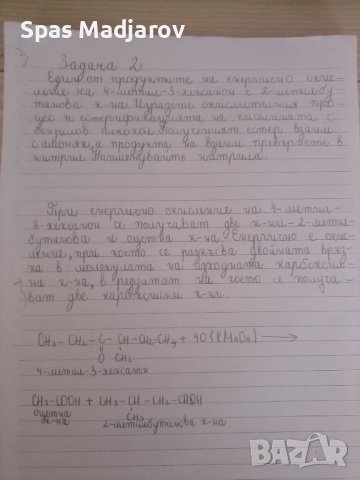 Spas Madjarov
3)
Задача 2
Един от продуктите на енергично окис-
ление на 4-метил-3-хексанон е 2-метилбу-
танова к-на. Изразете окислителния про-
цес и естерификацията на киселината с
бензилов алкохол. Полученият естер взаим.
с амоняк, а продукта на взаим. превърнете в
нитрил. Наименувайте нитрила.
При енергично окисление на 4-метил-
3-хексанон се получават две к-ни - 2-метил-
бутанова и оцетна к-на. Енергично е окис-
ление, при което се разкъсва двойната връз-
ка в молекулата на изходната карбоксил-
на к-на, в резултат на което се получа-
ват две карбоксилни к-ни.
CH₃ - CH₂ - C - CH - CH₂ - CH₃ + 4O (KMnO₄) ⟶
O CH₃
4-метил-3-хексанон
CH₃ - COOH + CH₃ - CH - CH₂ - COOH
оцетна CH₃
к-на 2-метилбутанова к-на
bazar.bg